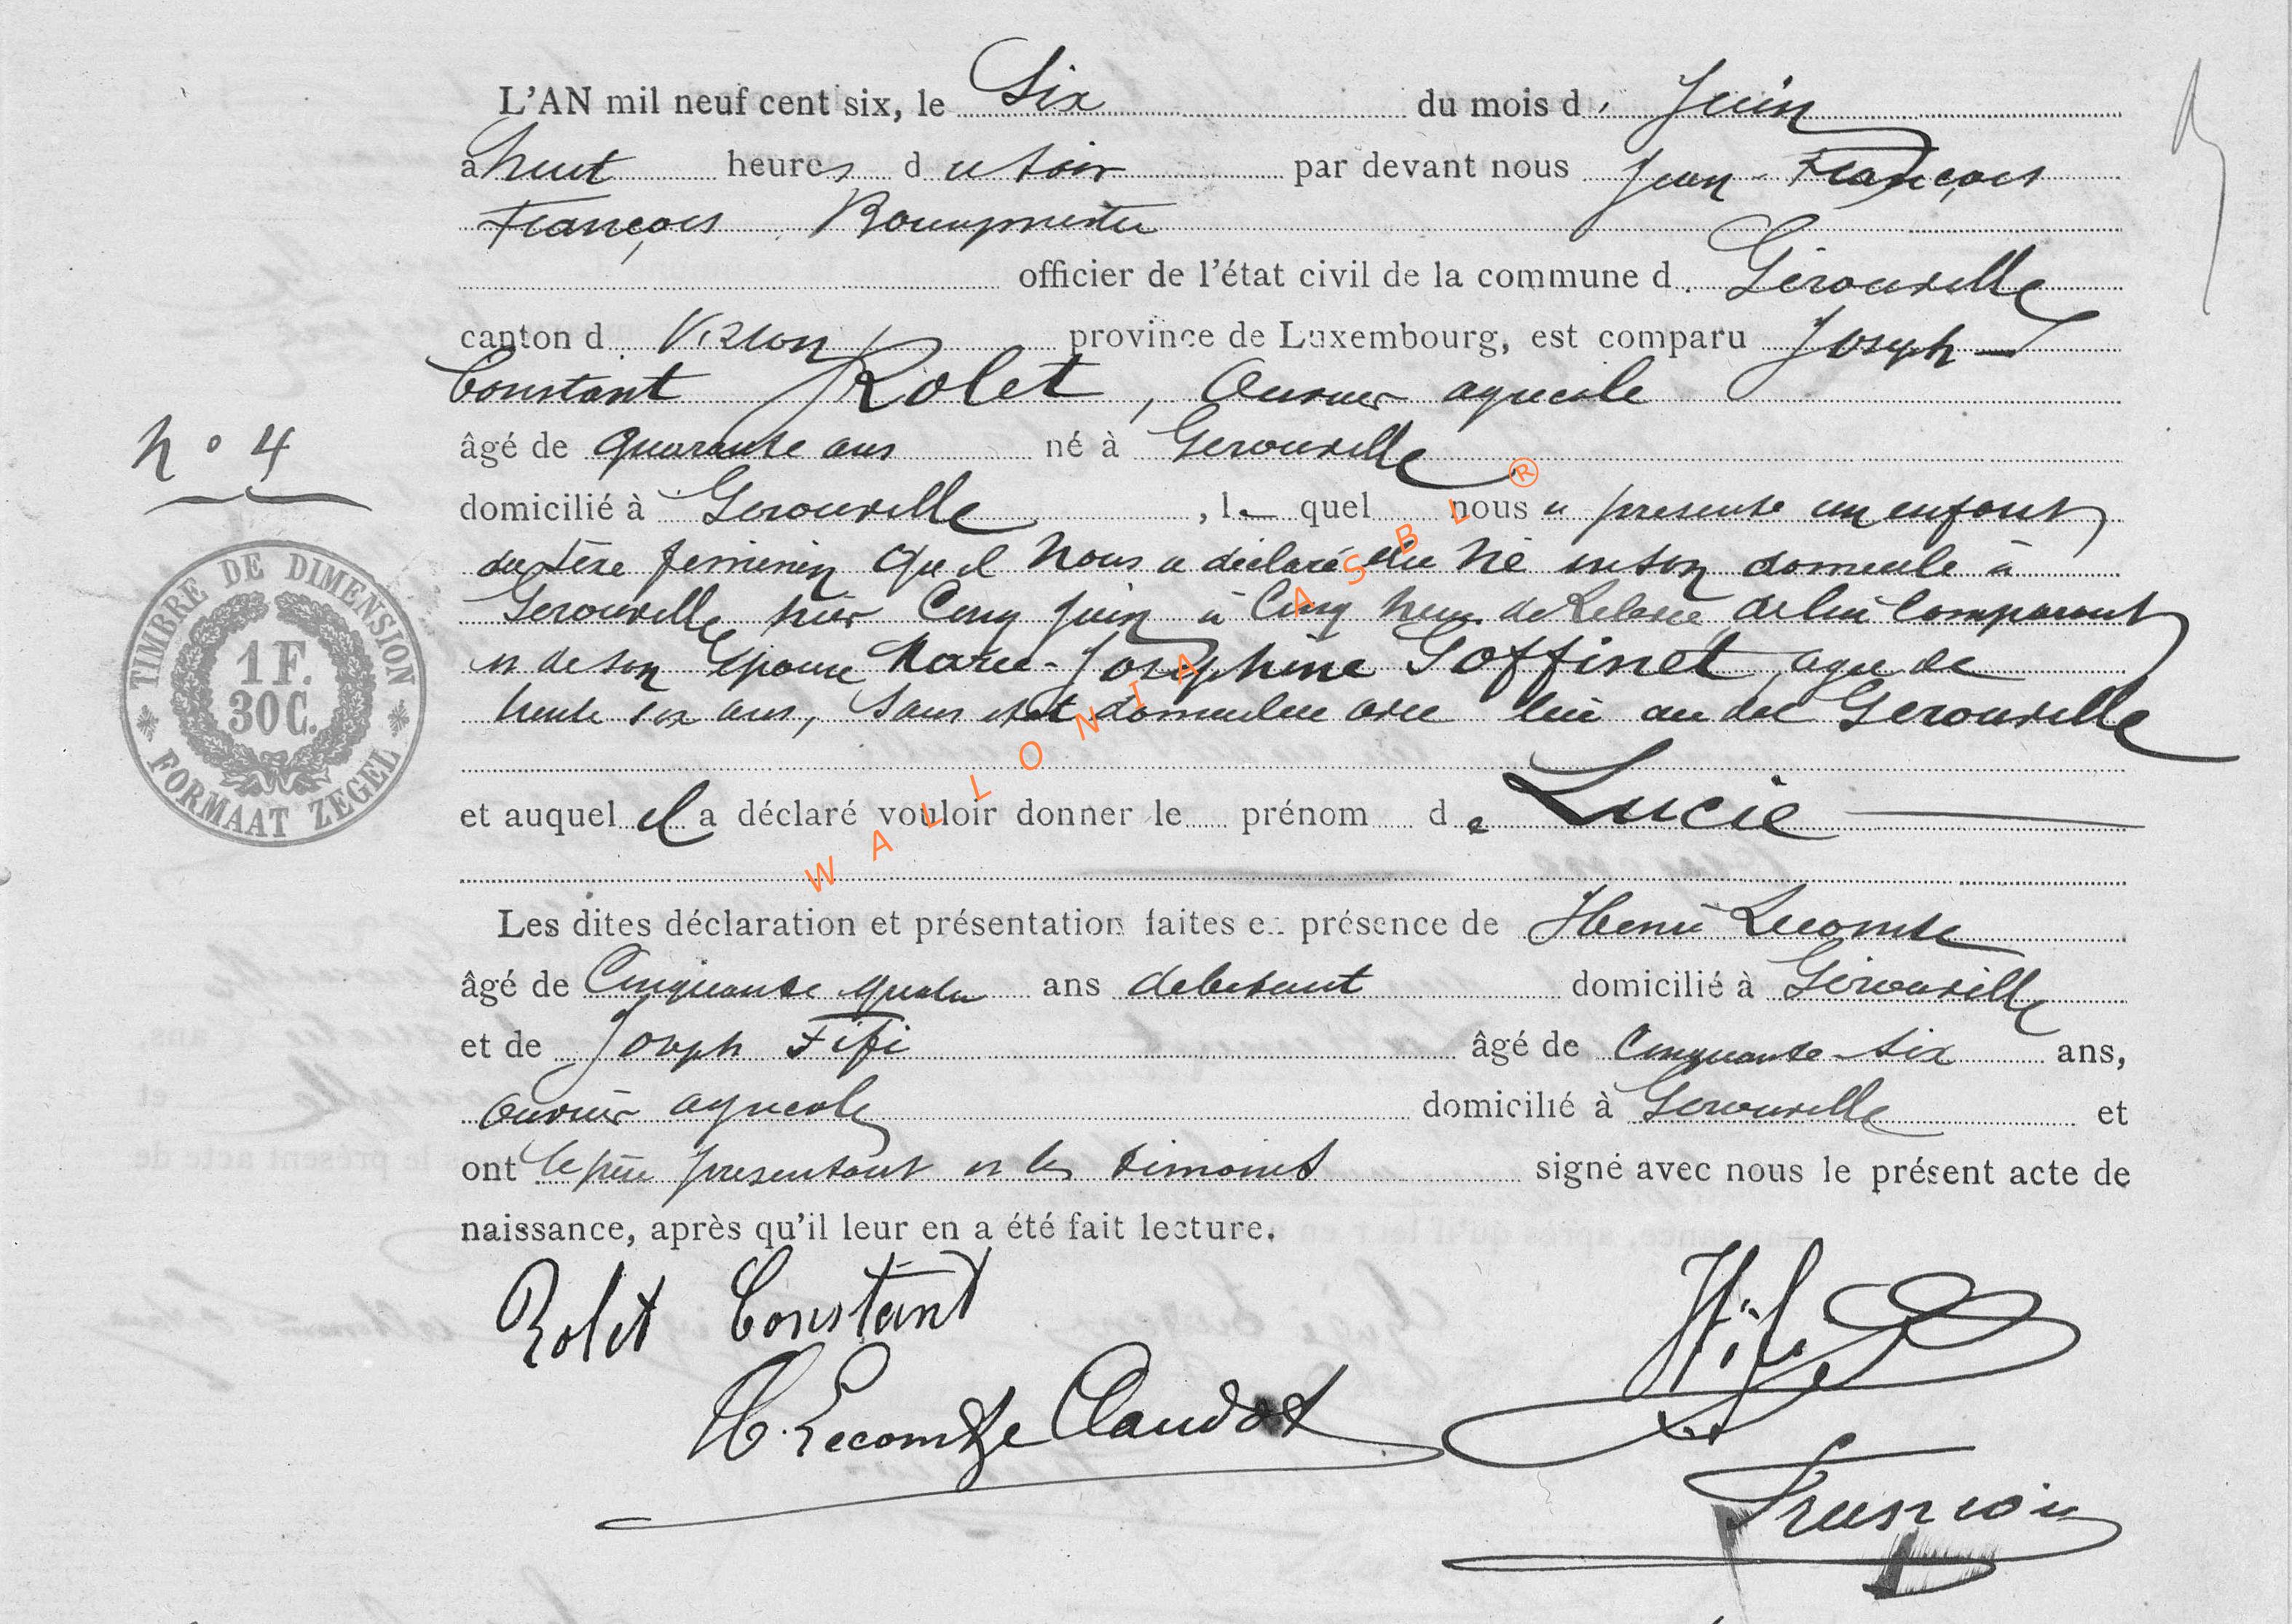 L'AN mil neuf cent six, le Six du mois d. Juin
à huit heures du soir par devant nous Jean-François
François Bourgmestre
officier de l'état civil de la commune d. Gérouville
canton d. Virton province de Luxembourg, est comparu Joseph
Constant Rolet, Ouvrier agricole
n° 4
âgé de quarante ans né à Gerouville
domicilié à Gerouville, le quel nous a presenté un enfant
du sexe feminin qu'il nous a déclaré être né en son domicile à
Gerouville hier Cinq Juin à Cinq heures de Relevée, de lui Comparant
et de son Epouse Marie-Josephine Goffinet, agée de
trente six ans, sans état domiciliée avec lui au dit Gerouville
et auquel il a déclaré vouloir donner le prénom de Lucie
Les dites déclaration et présentation faites en présence de Henri Lecomte
âgé de Cinquante quatre ans debitant domicilié à Gérouville
et de Joseph Fifi âgé de Cinquante-six ans,
ouvrier agricole domicilié à Gerouville et
ont le père presentant et les témoins signé avec nous le présent acte de
naissance, après qu'il leur en a été fait lecture.
Rolet Constant
H. Lecomte Claudot
TIMBRE DE DIMENSION
1 F.
30 C.
FORMAAT ZEGEL
WALLONIA ASBL ®